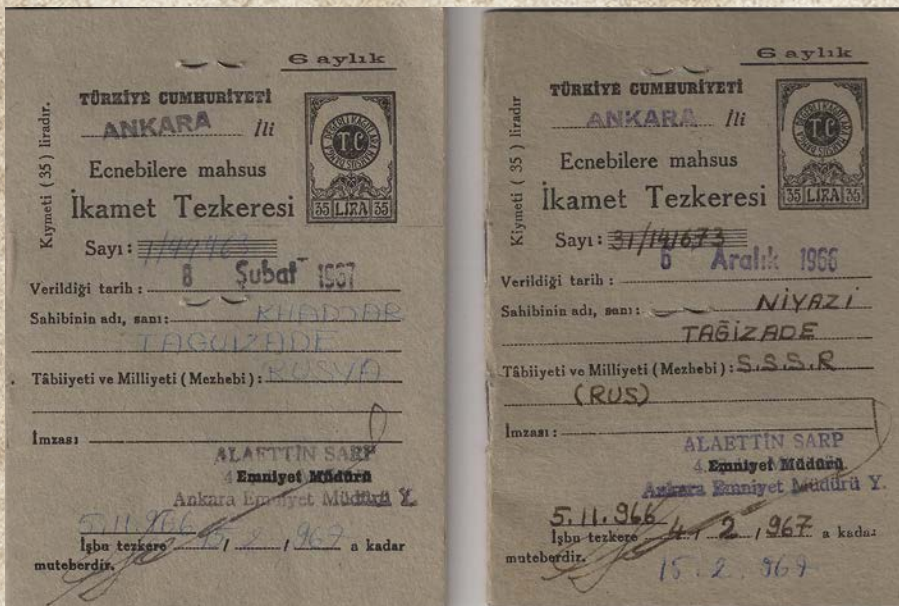 6 aylık
TÜRKİYE CUMHURİYETİ
ANKARA İli
Ecnebilere mahsus
İkamet Tezkeresi
Kıymeti ( 35 ) liradır.
T.C
35 LİRA 35
Sayı :
8 Şubat 1967
Verildiği tarih :
Sahibinin adı, sanı: KHADJAR
TAGUIZADE
Tâbiiyeti ve Milliyeti ( Mezhebi ) : RUSYA
İmzası
ALAETTİN SARP
Emniyet Müdürü
Ankara Emniyet Müdürü Y.
5.11.966
İşbu tezkere 15/ 2 / 967 a kadar
muteberdir.
6 aylık
TÜRKİYE CUMHURİYETİ
ANKARA İli
Ecnebilere mahsus
İkamet Tezkeresi
Kıymeti ( 35 ) liradır.
T.C
35 LİRA 35
Sayı : 31/141673
6 Aralık 1966
Verildiği tarih :
Sahibinin adı, sanı: NİYAZİ
TAĞİZADE
Tâbiiyeti ve Milliyeti ( Mezhebi ) : S.S.S.R
(RUS)
İmzası :
ALAETTİN SARP
4. Emniyet Müdürü
Ankara Emniyet Müdürü Y.
5.11.966
İşbu tezkere 4 / 2 / 967 a kadar
muteberdir.
15.2.967